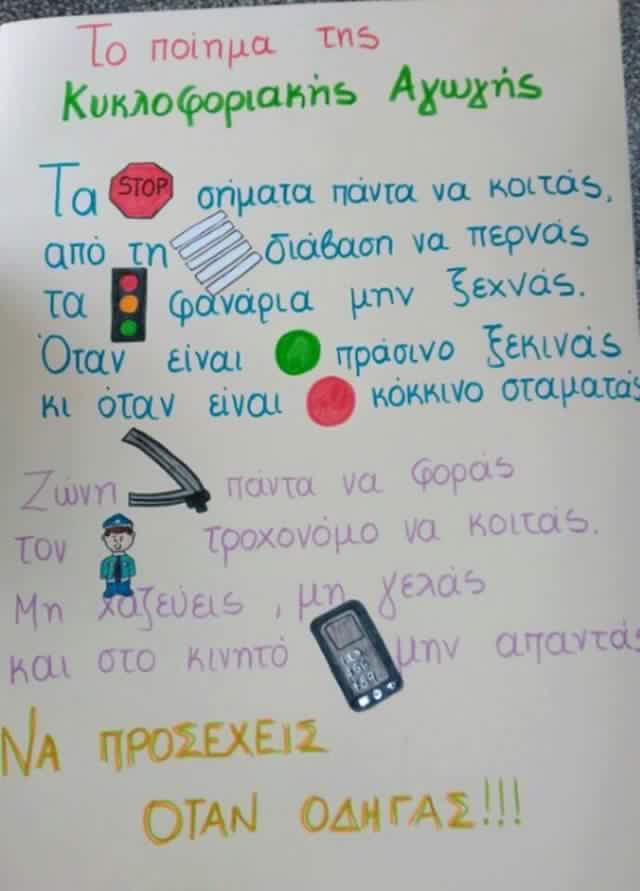 Το ποίημα της
Κυκλοφοριακής Αγωγής
Τα STOP σήματα πάντα να κοιτάς,
από τη διάβαση να περνάς
τα φανάρια μην ξεχνάς.
Όταν είναι πράσινο ξεκινάς
κι όταν είναι κόκκινο σταματάς
Ζώνη πάντα να φοράς
τον τροχονόμο να κοιτάς.
Μη χαζεύεις, μη γελάς
και στο κινητό μην απαντάς
ΝΑ ΠΡΟΣΕΧΕΙΣ
ΟΤΑΝ ΟΔΗΓΑΣ!!!